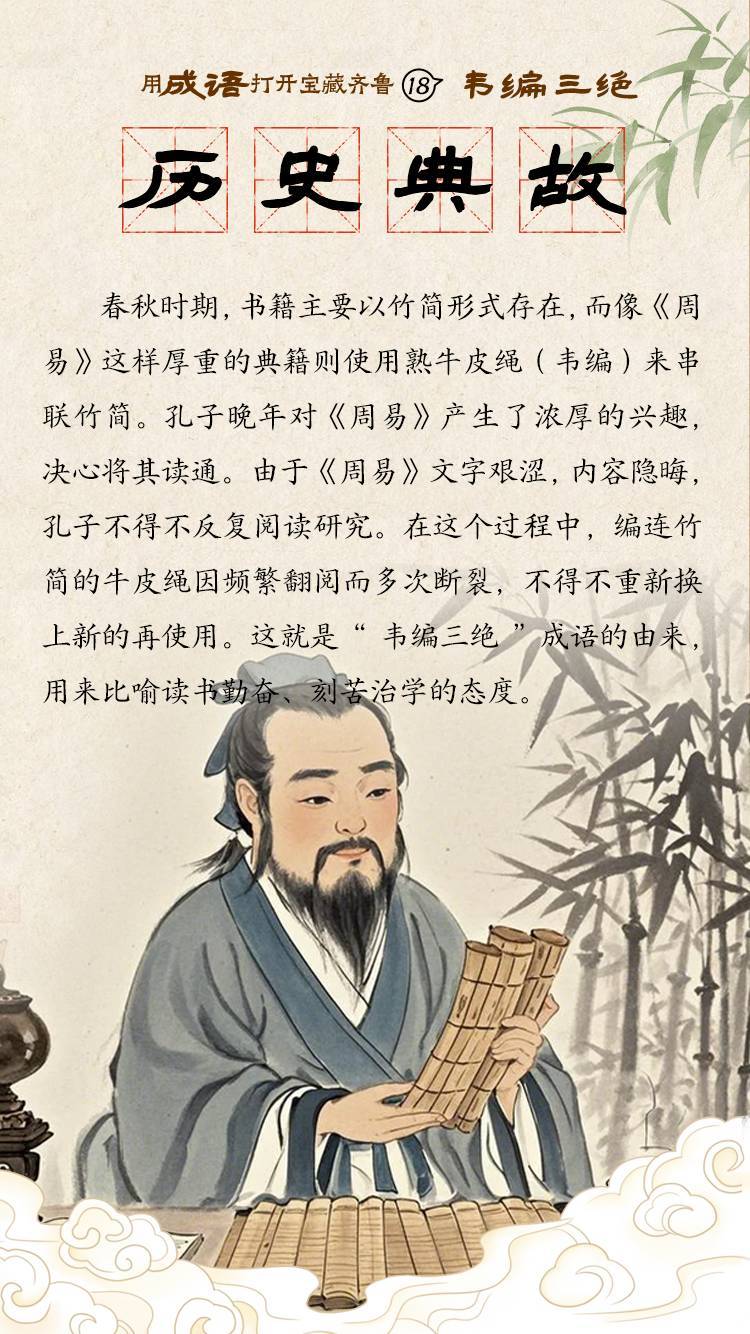 用成语打开宝藏齐鲁 18 韦编三绝
历史典故
春秋时期，书籍主要以竹简形式存在，而像《周
易》这样厚重的典籍则使用熟牛皮绳（韦编）来串
联竹简。孔子晚年对《周易》产生了浓厚的兴趣，
决心将其读通。由于《周易》文字艰涩，内容隐晦，
孔子不得不反复阅读研究。在这个过程中，编连竹
简的牛皮绳因频繁翻阅而多次断裂，不得不重新换
上新的再使用。这就是“韦编三绝”成语的由来，
用来比喻读书勤奋、刻苦治学的态度。